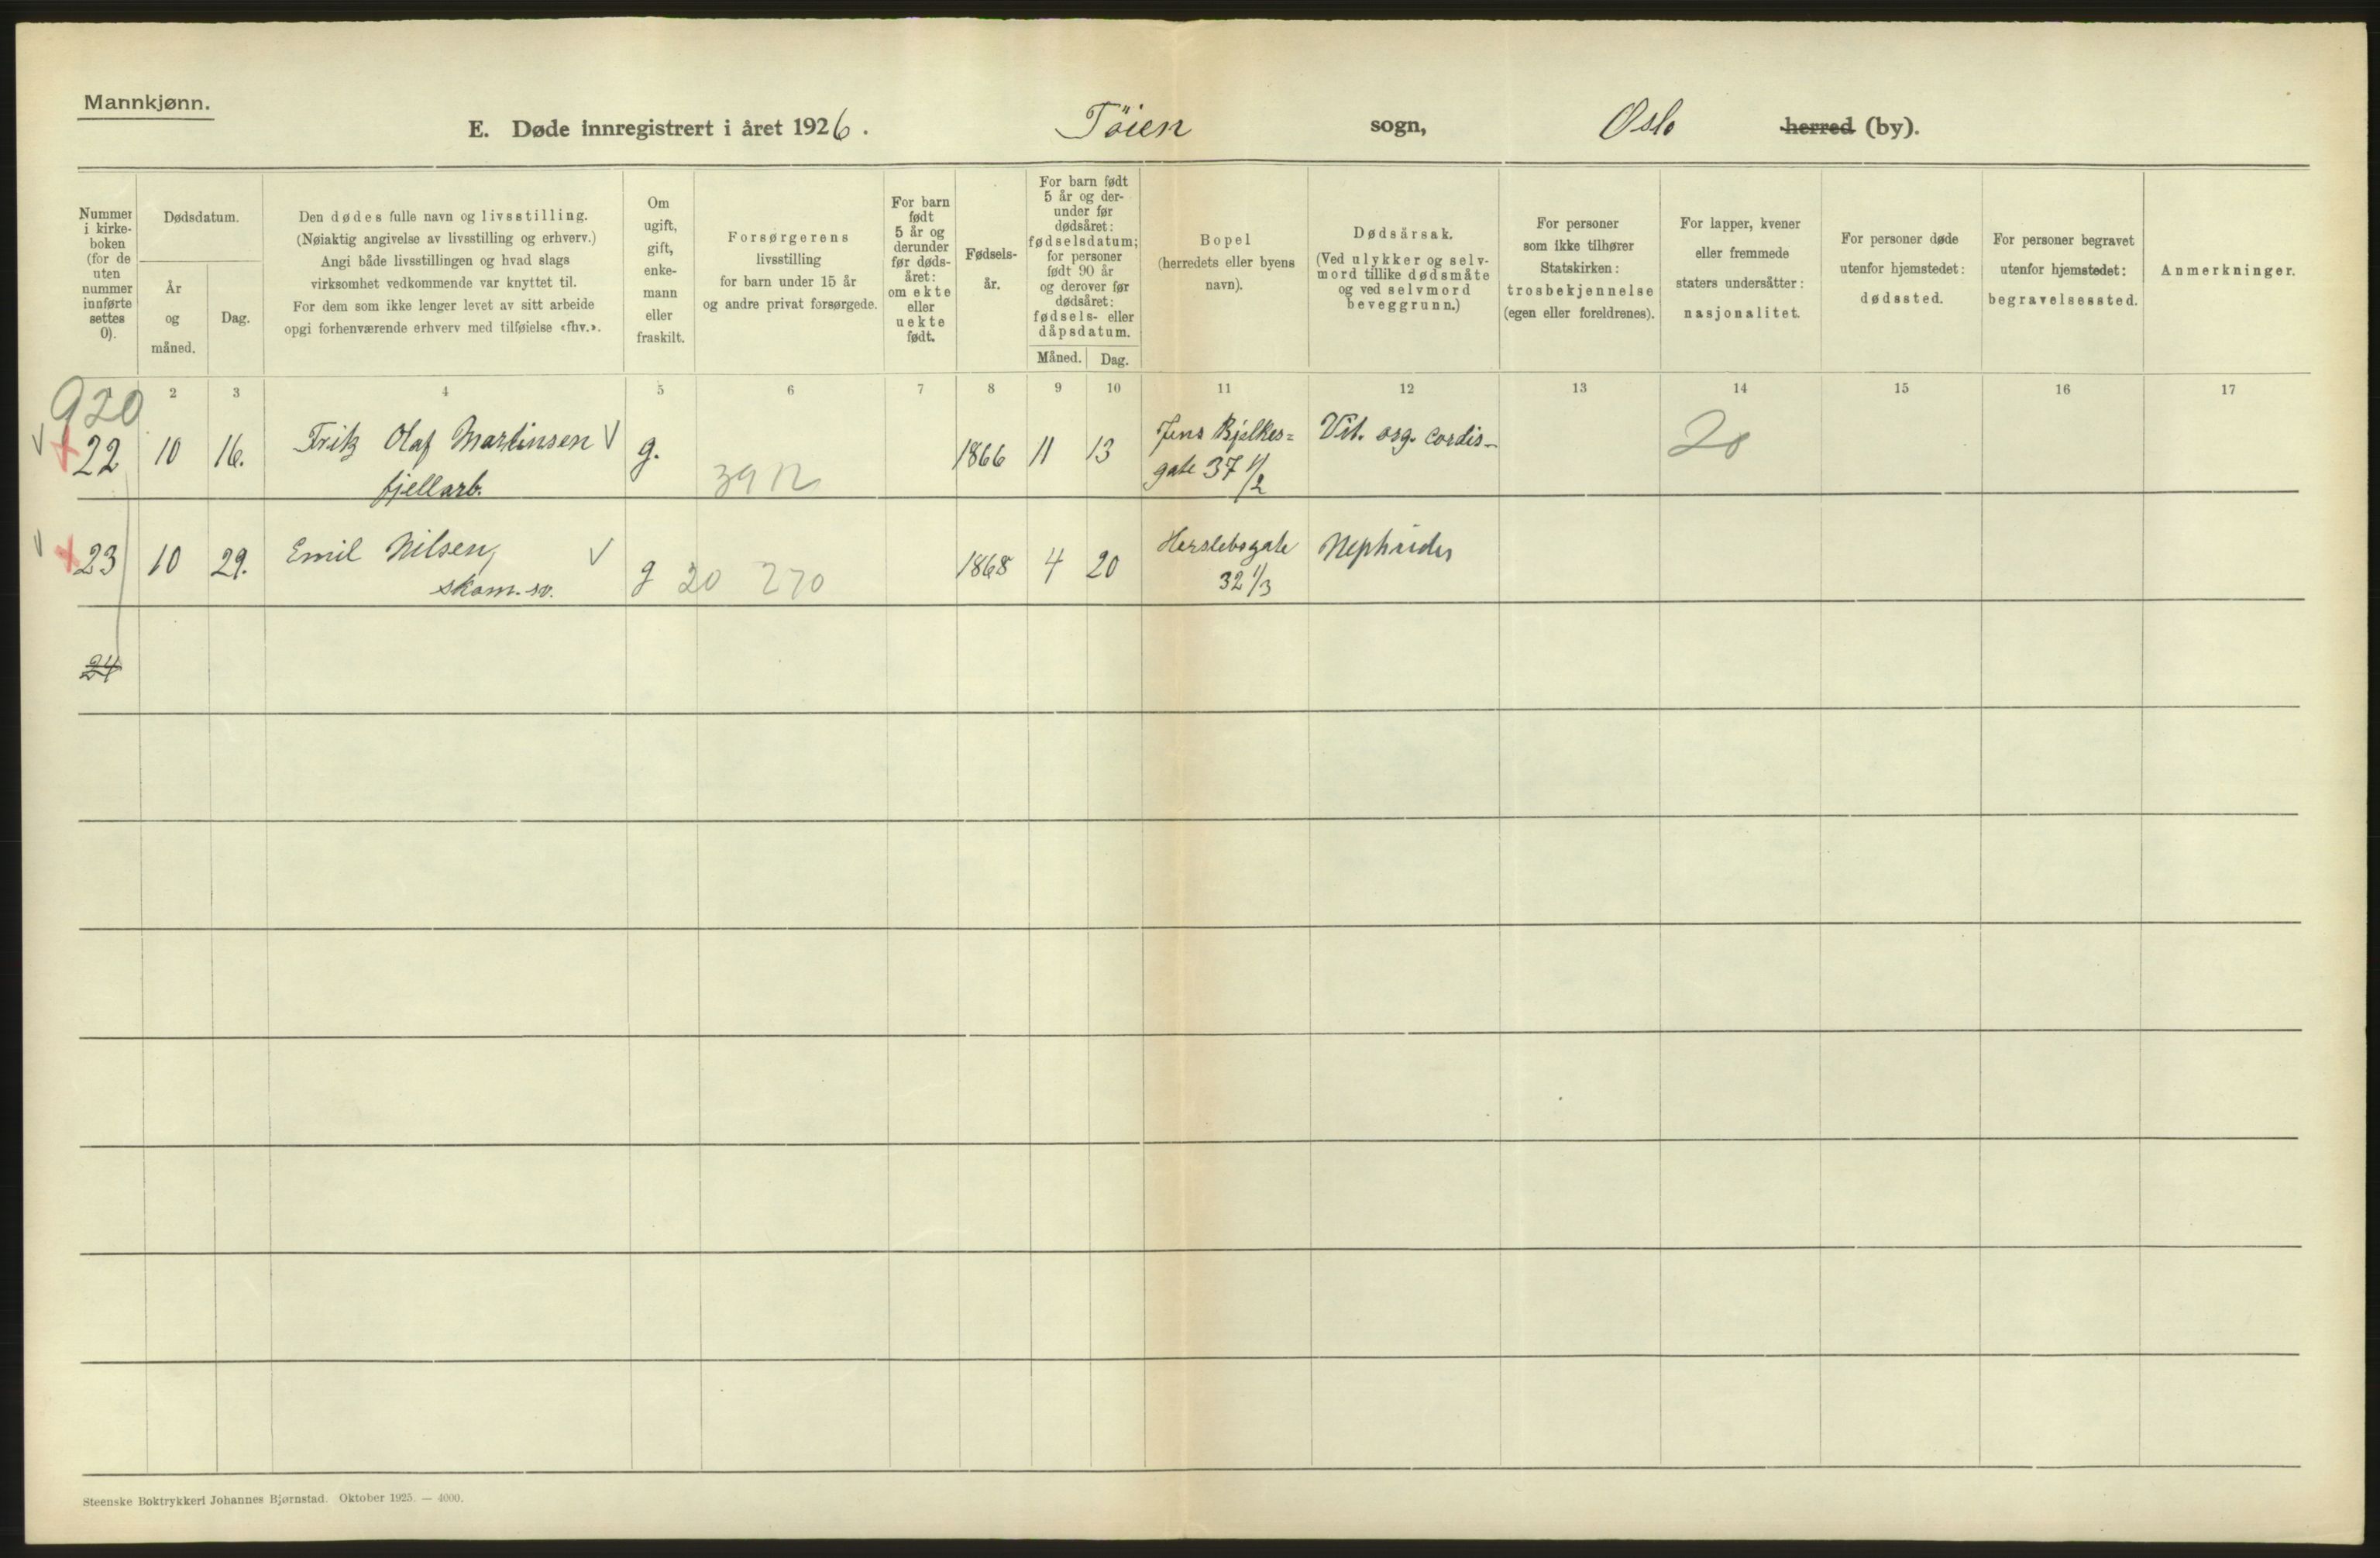 Mannkjønn.
E. Døde innregistrert i året 1926. Töien sogn, Oslo herred (by).
Nummer i kirke-boken (for de uten nummer innførte settes 0).
Dødsdatum.
År og måned.
Dag.
Den dødes fulle navn og livsstilling.
(Nøiaktig angivelse av livsstilling og erhverv.)
Angi både livsstillingen og hvad slags
virksomhet vedkommende var knyttet til.
For dem som ikke lenger levet av sitt arbeide
opgi forhenværende erhverv med tilføielse «fhv.».
Om ugift, gift, enke-mann eller fraskilt.
Forsørgerens
livsstilling
for barn under 15 år
og andre privat forsørgede.
For barn født 5 år og derunder før døds-året: om ekte eller uekte født.
Fødsels-år.
For barn født 5 år og der-under før dødsåret: fødselsdatum; for personer født 90 år og derover før dødsåret: fødsels- eller dåpsdatum.
Måned. Dag.
Bopel
(herredets eller byens
navn).
Dødsårsak.
(Ved ulykker og selv-
mord tillike dødsmåte
og ved selvmord
beveggrunn.)
For personer
som ikke tilhører
Statskirken:
trosbekjennelse
(egen eller foreldrenes).
For lapper, kvener
eller fremmede
staters undersåtter:
nasjonalitet.
For personer døde
utenfor hjemstedet:
dødssted.
For personer begravet
utenfor hjemstedet:
begravelsessted.
Anmerkninger.
2 3 4 5 6 7 8 9 10 11 12 13 14 15 16 17
920
22 10 16. Fritz Olaf Martinsen V g. 1866 11 13 Jens Bjelkes= Vit. org. cordis- 20
fjellarb. 3912 gate 37 1/2
23 10 29. Emil Nilsen, V g 20 270 1868 4 20 Herslebsgate Nephrides
skom. sv. 32 1/3
24
Steenske Boktrykkeri Johannes Bjørnstad. Oktober 1925. — 4000.